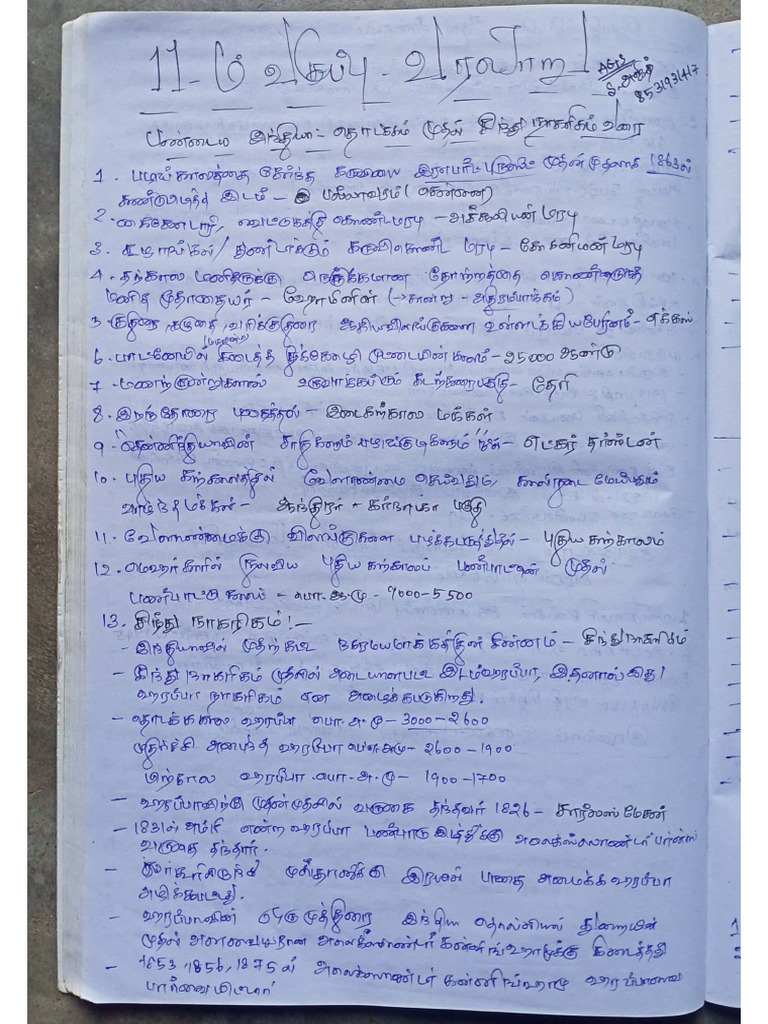 11-ம் வகுப்பு - வரலாறு
8531931417
பண்டைய இந்தியா: தொடக்கம் முதல் சிந்து நாகரிகம் வரை
1. பழங்காலத்தை சேர்ந்த கருவியை இராபர்ட் புரூஸ்பூட் முதன் முதலாக 1863ல்
கண்டுபிடித்த இடம் - பல்லாவரம் (சென்னை)
2. கைக்கோடாரி, வெட்டுகத்தி கொண்ட மரபு - அச்சூலியன் மரபு
3. கூழாங்கல் / துண்டாக்கும் கருவி கொண்ட மரபு - சோகனியன் மரபு
4. தற்கால மனிதருக்கு நெருக்கமான தோற்றத்தை கொண்டிருந்த
மனித மூதாதையர் - ஹோமினின் (→சான்று - அதிரம்பாக்கம்)
5 குதிரை, கழுதை, வரிக்குதிரை ஆகிய விலங்குகளை உள்ளடக்கிய பேரினம் - ஈக்கஸ்
6. பாட்னேயில் கிடைத்த தீக்கோழி முட்டையின் காலம் - 25000 ஆண்டு
7. மணற்குன்றுகளால் உருவாக்கப்படும் கடற்கரை பகுதி - தேரி
8. இறந்தோரை புதைத்தல் - இடைகற்கால மக்கள்
9. தென்னிந்தியாவின் சாதிகளும் பழங்குடிகளும் நூல் - எட்கர் தர்ஸ்டன்
10. புதிய கற்காலத்தில் வேளாண்மை செய்வதும், கால்நடை மேய்க்கும்
வாழ்ந்த மக்கள் - ஆந்திரா - கர்நாடகா பகுதி
11. வேளாண்மைக்கு விலங்குகளை பழக்கப்படுத்தல் - புதிய கற்காலம்
12. மெஹர்காரில் நிலவிய புதிய கற்காலப் பண்பாட்டின் முதல்
பண்பாட்டு காலம் - பொ.ஆ.மு - 7000-5500
13. சிந்து நாகரிகம்!:-
- இந்தியாவில் முதற்கட்ட நகரமயமாக்கத்தின் சின்னம் - சிந்து நாகரிகம்
- சிந்து நாகரிகம் முதலில் அடையாளபட்ட இடம் ஹரப்பா, இதனால் இது
ஹரப்பா நாகரிகம் என அழைக்கப்படுகிறது.
- தொடக்ககால ஹரப்பா பொ.ஆ.மு - 3000-2600
முதிர்ச்சி அடைந்த ஹரப்பா பொ.ஆ.மு - 2600-1900
பிற்கால ஹரப்பா பொ.ஆ.மு - 1900-1700
- ஹரப்பாவிற்கு முதன்முதலில் வருகை தந்தவர் 1826 - சார்லஸ் மேசன்
- 1831ல் அம்ரி என்ற ஹரப்பா பண்பாடு இடத்திக்கு அலெக்ஸாண்டர் பர்ன்ஸ்
வருகை தந்தார்.
- லாகூரிலிருந்து முல்தானிக்கு இரயில் பாதை அமைக்க ஹரப்பா
அழிக்கபட்டது.
- ஹரப்பாவின் ஒரு முத்திரை இந்திய தொல்லியல் துறையின்
முதல் அளவையாளரான அலெக்ஸாண்டர் கன்னிங்ஹாமுக்கு கிடைத்தது
- 1853, 1856, 1875 ல் அலெக்ஸாண்டர் கன்னிங்ஹாம் ஹரப்பாவை
பார்வையிட்டார்